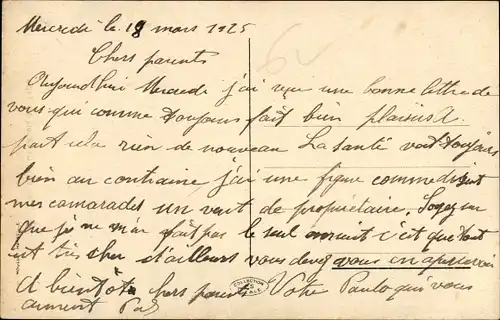 Mercredi le 18 mars 1925
Chers parents
Aujourdhui Mercredi j'ai reçu une bonne lettre de
vous qui comme toujours fait bien plaisir. A
part cela rien de nouveau La santé va toujours
bien au contraire j'ai une figure comme disent
mes camarades un vent de propriétaire.
que je ne m'en fait pas le seul ennuit c'et que tout
et très cher d'ailleurs vous devez vous en apercevoir
A bientôt chers parents Votre Paulo qui vous
aiment
COLLECTION